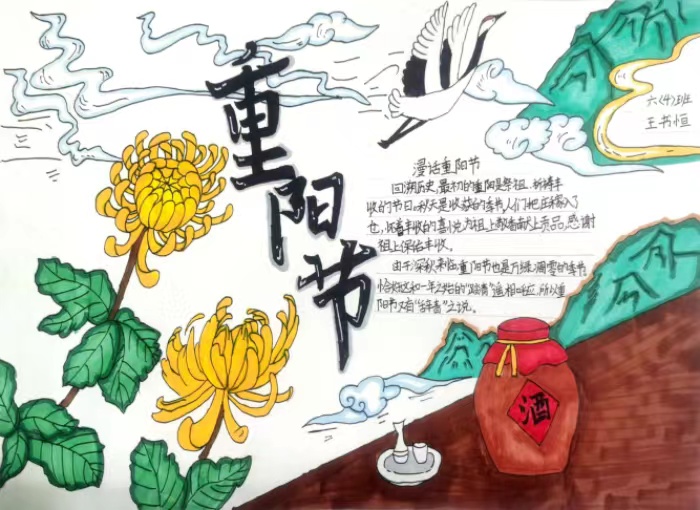 重阳节
六(4)班
王书恒
漫话重阳节
回溯历史,最初的重阳是祭祖、祈祷丰
收的节日。秋天是收获的季节人们把庄稼入了
仓,怀着丰收的喜悦为祖上敬香献上贡品,感谢
祖上保佑丰收。
由于深秋来临,重阳节也是万绿凋零的季节
恰好这和一年之始的“踏青”遥相呼应,所以重
阳节又有“辞青”之说。
酒